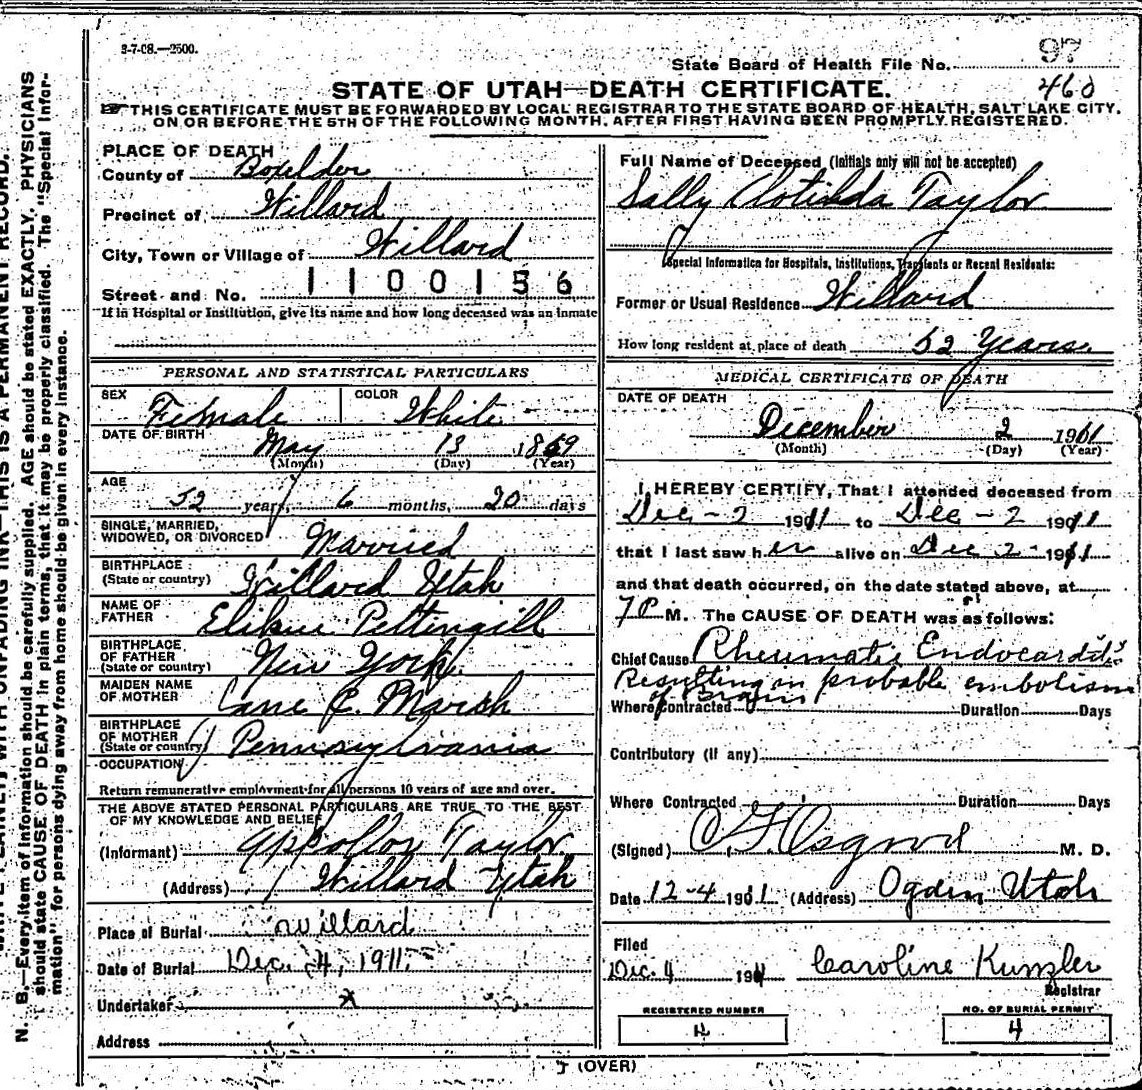 3-7-08.—2500.
97
State Board of Health File No.
460
STATE OF UTAH—DEATH CERTIFICATE.
THIS CERTIFICATE MUST BE FORWARDED BY LOCAL REGISTRAR TO THE STATE BOARD OF HEALTH, SALT LAKE CITY,
ON OR BEFORE THE 5TH OF THE FOLLOWING MONTH, AFTER FIRST HAVING BEEN PROMPTLY REGISTERED.
PLACE OF DEATH
County of Boxelder
Precinct of Willard
City, Town or Village of Willard
1100156
Street and No.
If in Hospital or Institution, give its name and how long deceased was an inmate
PERSONAL AND STATISTICAL PARTICULARS
SEX Female COLOR White
DATE OF BIRTH May 13 1859
(Month) (Day) (Year)
AGE
52 years 6 months, 20 days
SINGLE, MARRIED,
WIDOWED, OR DIVORCED Married
BIRTHPLACE
(State or country) Willard Utah
NAME OF
FATHER Elihue Pettingill
BIRTHPLACE
OF FATHER
(State or country) New York
MAIDEN NAME
OF MOTHER C. Marsh
BIRTHPLACE
OF MOTHER
(State or country) Pennsylvania
OCCUPATION
Return remunerative employment for all persons 10 years of age and over.
THE ABOVE STATED PERSONAL PARTICULARS ARE TRUE TO THE BEST
OF MY KNOWLEDGE AND BELIEF
(Informant) Taylor
(Address) Willard Utah
Place of Burial Willard
Date of Burial Dec. 4, 1911.
Undertaker x
Address
Full Name of Deceased (Initials only will not be accepted)
Sally Clotilda Taylor
Special Information for Hospitals, Institutions, Transients or Recent Residents:
Former or Usual Residence Willard
How long resident at place of death 52 Years.
MEDICAL CERTIFICATE OF DEATH
DATE OF DEATH
December 2 1911
(Month) (Day) (Year)
I HEREBY CERTIFY, That I attended deceased from
Dec - 2 1911 to Dec - 2 1911
that I last saw her alive on Dec 2 - 1911
and that death occurred, on the date stated above, at
7 P M. The CAUSE OF DEATH was as follows:
Chief Cause Rheumatic Endocarditis
Resulting in probable embolism
of Brain
Where Contracted Duration Days
Contributory (if any)
Where Contracted Duration Days
(Signed) Osgood M. D.
Date 12-4 1911 (Address) Ogden Utah
Filed
Dec. 4 1911 Caroline Kunzler
Registrar
REGISTERED NUMBER NO. OF BURIAL PERMIT
4 4
(OVER)
N. B.—Every item of information should be carefully supplied. AGE should be stated EXACTLY. PHYSICIANS
should state CAUSE OF DEATH in plain terms, that it may be properly classified. The "Special Infor-
mation" for persons dying away from home should be given in every instance.
WITH UNFADING INK—THIS IS A PERMANENT RECORD.